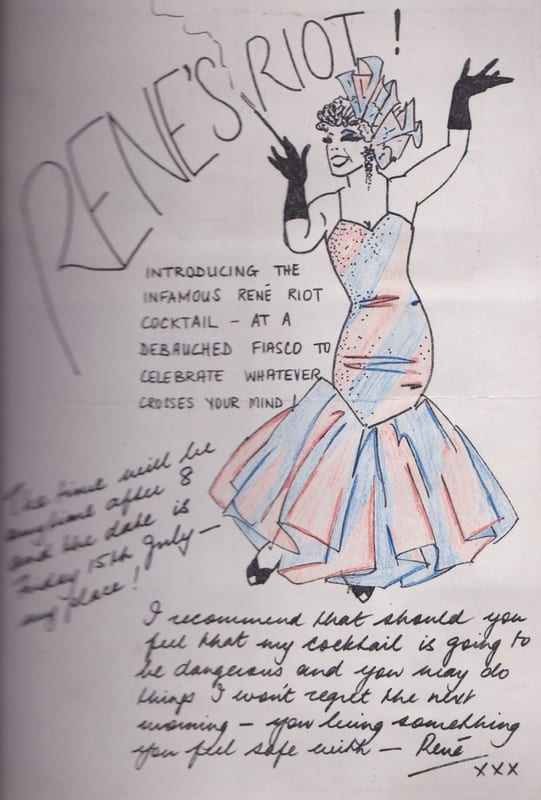 RENE'S RIOT!
INTRODUCING THE
INFAMOUS RENÉ RIOT
COCKTAIL – AT A
DEBAUCHED FIASCO TO
CELEBRATE WHATEVER
CROSSES YOUR MIND!
The time will be
anytime after 8
and the date is
Friday 15th July –
my place!
I recommend that should you
feel that my cocktail is going to
be dangerous and you may do
things I won't regret the next
morning – you bring something
you feel safe with – René
xxx